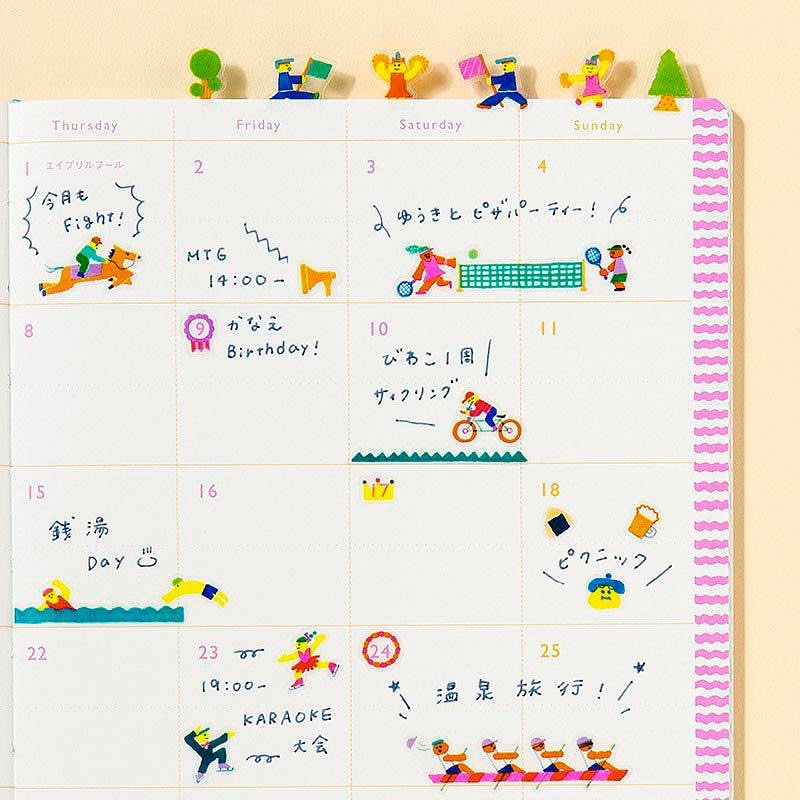 Thursday
Friday
Saturday
Sunday
1 エイプリルフール
今月も
Fight!
2
MTG
14:00-
3
4
ゆうきと ピザパーティー!
8
9
かなえ
Birthday!
10
びわこ1周
サイクリング
11
15
銭湯
Day
16
17
18
ピクニック
22
23
19:00-
KARAOKE
大会
24
25
温泉旅行!